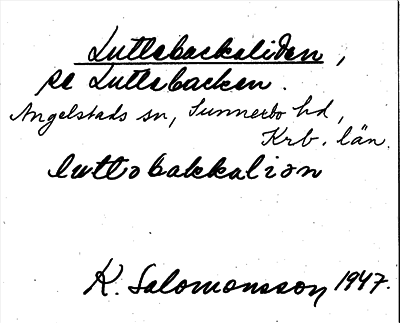 Luttabackaliden,
se Luttabacken.
Angelstads sn, Sunnerbo hd,
Krb. län.
luttabakkaliən
K. Salomonsson 1947.